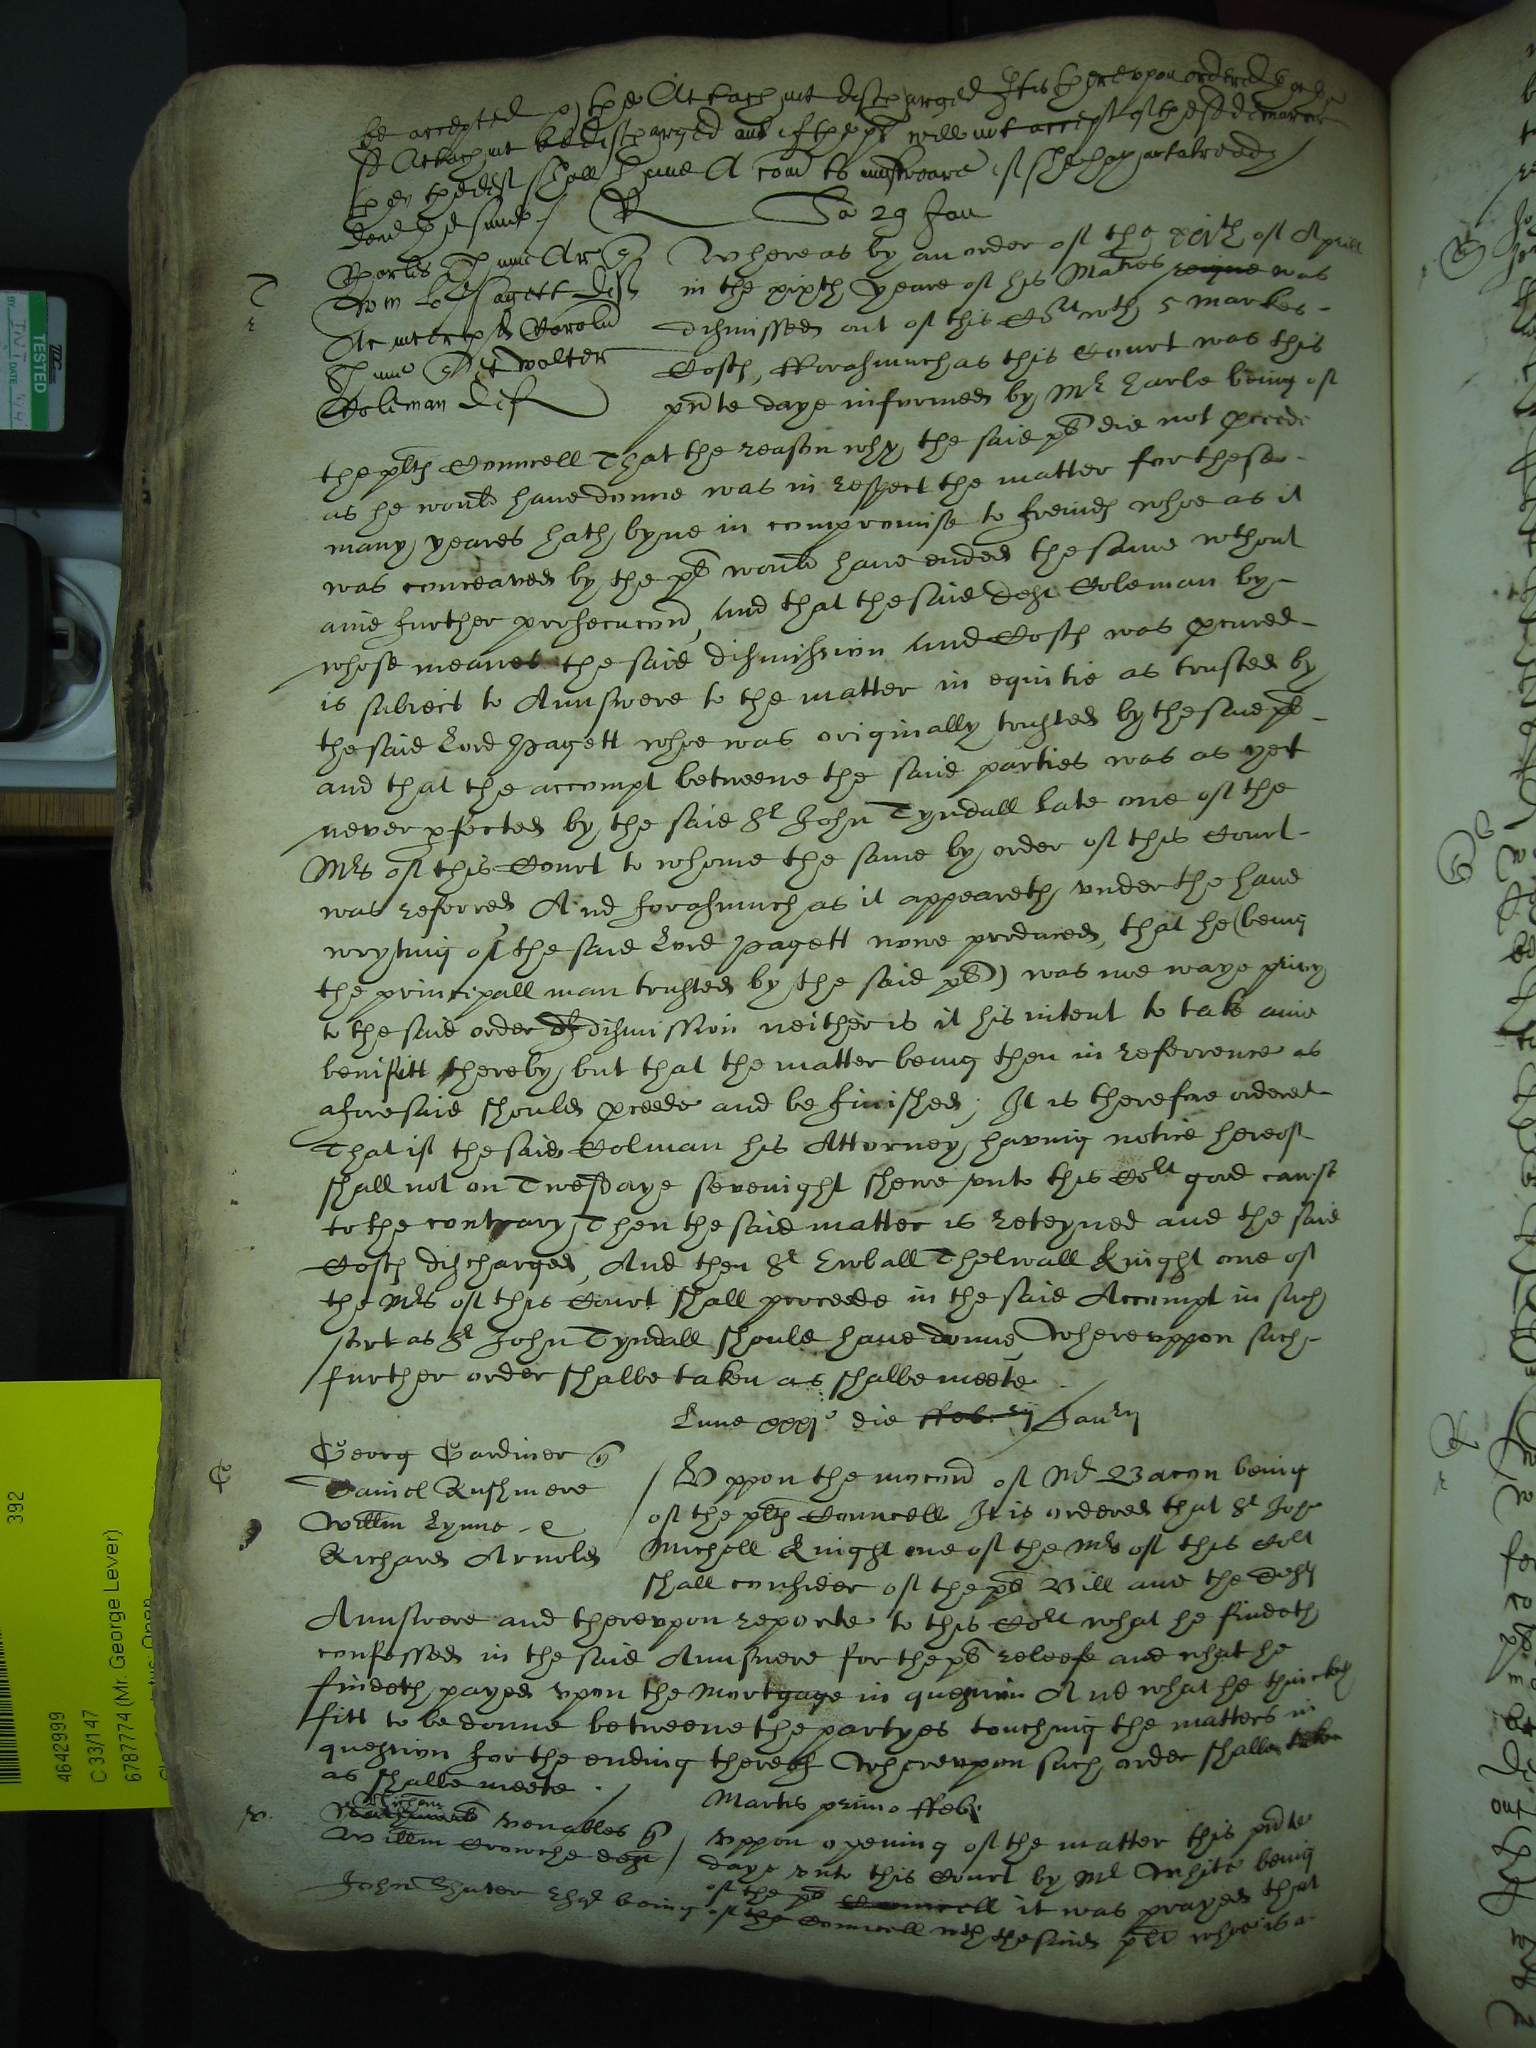 be accepted & the Attachmt discharged It is thereupon ordered
sd Attachmt be discharged and if the plt will not accept of the sd demurrer
then the deft shall have A com to answeare if she hay not already
Sa 29 Jan
Whereas by an order of the xvith of Aprill
in the sixth yeare of his Maties reigne was
Lord Pagett deft
dismissed out of this Cort wth 5 markes
At inter Carolu
Costs, fforasmuch as this Court was this
et Walter
Coleman deft
pnte daye informed by Mr Earle being of
the plts Councell That the reason why the said plt did not pceede
as he would have donne was in respect the matter for these
many yeares hath byne in compromise to freinds whoe as it
was conceaved by the plt would have ended the same wthout
anie further prosecucon, And that the said deft Coleman by
whose meanes the said dismission and Costs was pcured
is subiect to Aunswere to the matter in equitie as trusted by
the said Lord Pagett whoe was originally trusted by the said plt
and that the accompt betweene the said parties was as yet
never pfected by the said Sr John Tyndall late one of the
Mrs of this Court to whome the same by order of this Court
was referred And forasmuch as it appeareth under the hand
wryting of the said Lord Pagett nowe produced, that he (being
the principall man trusted by the said plt) was noe waye privy
to the said order of dismission neither is it his intent to take anie
benifitt thereby, but that the matter being then in referrence as
aforesaid should pceede and be finished; It is therefore ordered
That if the said Colman his Attorney having notice hereof
shall not on Twesdaye sevenight shewe unto this Cort good cause
to the contrary, Then the said matter is reteyned and the said
Costs discharged, And then Sr Euball Thelwall Knight one of
the Mrs of this Court shall proceede in the said Accompt in such
sort as Sr John Tyndall should have donne, Whereuppon such
further order shalbe taken as shalbe meete
Lune xxxi die ffebrij Januij
Georg Gardiner q
Daniel Rushmere
Willm Lynne
Richard Arnold
Uppon the mocon of Mr Bacon being
of the plts Councell It is ordered that Sr John
Michell Knight one of the Mrs of this Cort
shall consider of the plts Bill and the Defts
Aunswere and thereupon reporte to this Cort what he findeth
confessed in the said Aunswere for the plts releefe and what he
findeth payed upon the Mortgage in question And what he thincketh
fitt to be donne betweene the partyes touching the matters in
question for the ending thereof Whereupon such order shalbe taken
as shalbe meete.
Martis primo ffebr
Venables q
Willm Crowche deft
Uppon opening of the matter this pnte
daye unto this Court by Mr White being
of the plts Councell it was prayed that
John
being of the Councell wth the said plt whoe is a
TESTED
BY
INT
DATE
392
4642999
C 33/147
6787774 (Mr. George Lever)